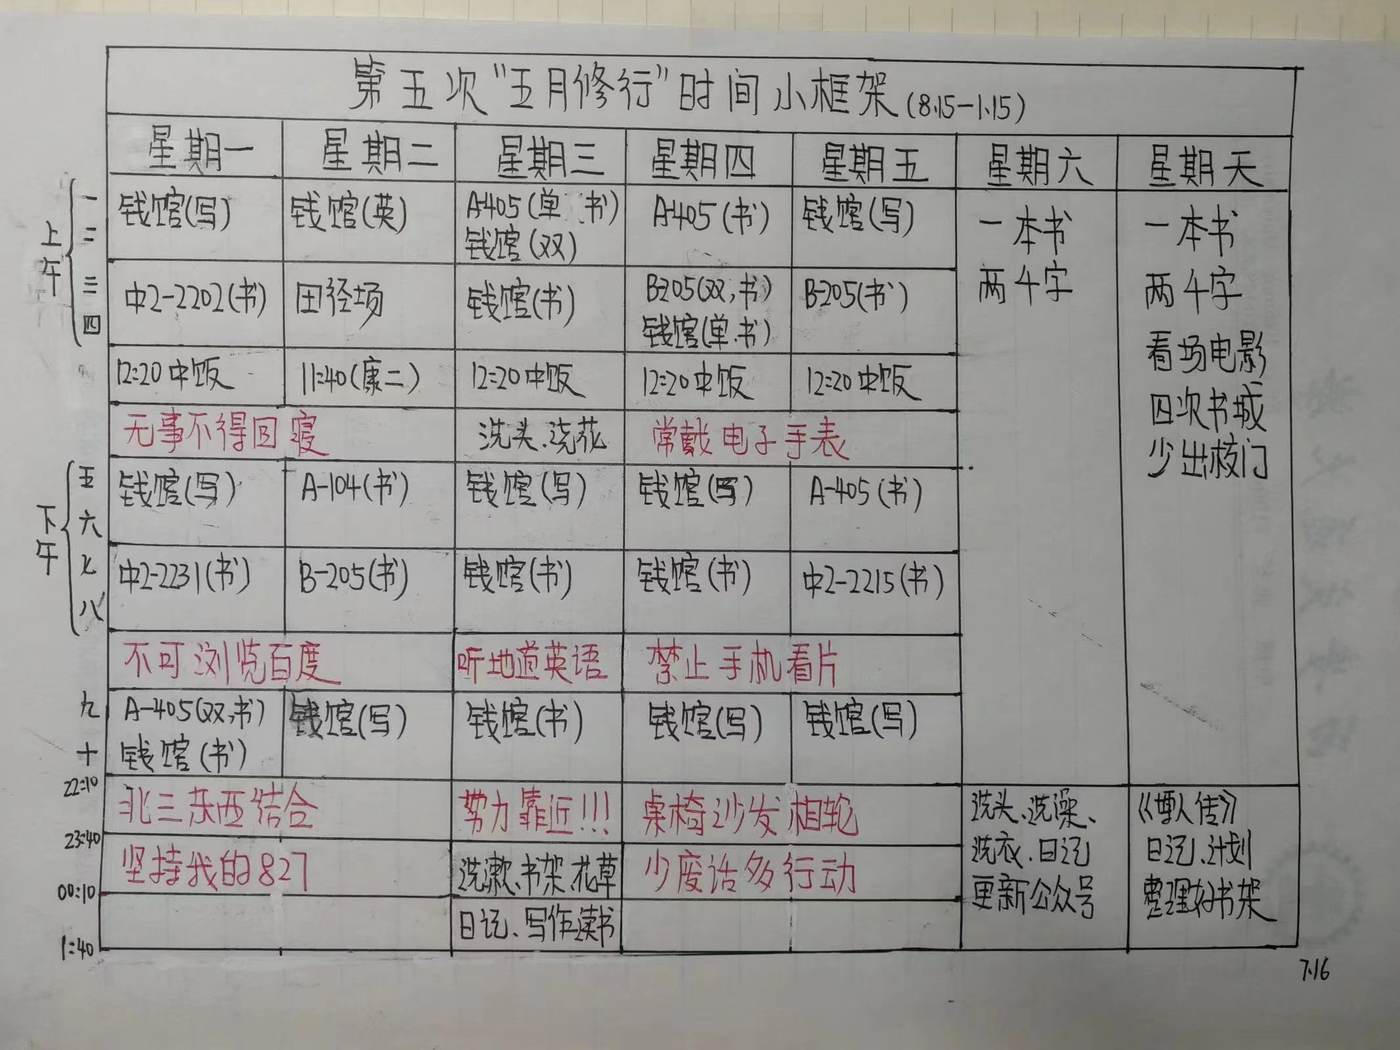 第五次"五月修行"时间小框架(8.15-1.15)
星期一 星期二 星期三 星期四 星期五 星期六 星期天
上午
一
二
钱馆(写) 钱馆(英) A-405(单.书) A-405(书) 钱馆(写) 一本书 一本书
钱馆(双)
三
四
中2-2202(书) 田径场 钱馆(书) B-205(双,书) B-205(书) 两千字 两千字
钱馆(单.书)
看场电影
12:20中饭 11:40(康二) 12:20中饭 12:20中饭 12:20中饭
四次书城
无事不得回寝 洗头、浇花 常戴电子手表
少出校门
下午
五
六
钱馆(写) A-104(书) 钱馆(写) 钱馆(写) A-405(书)
七
八
中2-2231(书) B-205(书) 钱馆(书) 钱馆(书) 中2-2215(书)
不可浏览百度 听地道英语 禁止手机看片
九
十
A-405(双,书) 钱馆(写) 钱馆(书) 钱馆(写) 钱馆(写)
钱馆(书)
22:10
北三东西结合 努力靠近!!! 桌椅沙发相轮 洗头、洗澡、
23:40
坚持我的827 洗漱、书架、花草 少废话多行动 洗衣、日记 日记、计划
00:10
更新公众号 整理好书架
日记、写作、读书
1:40
7.16